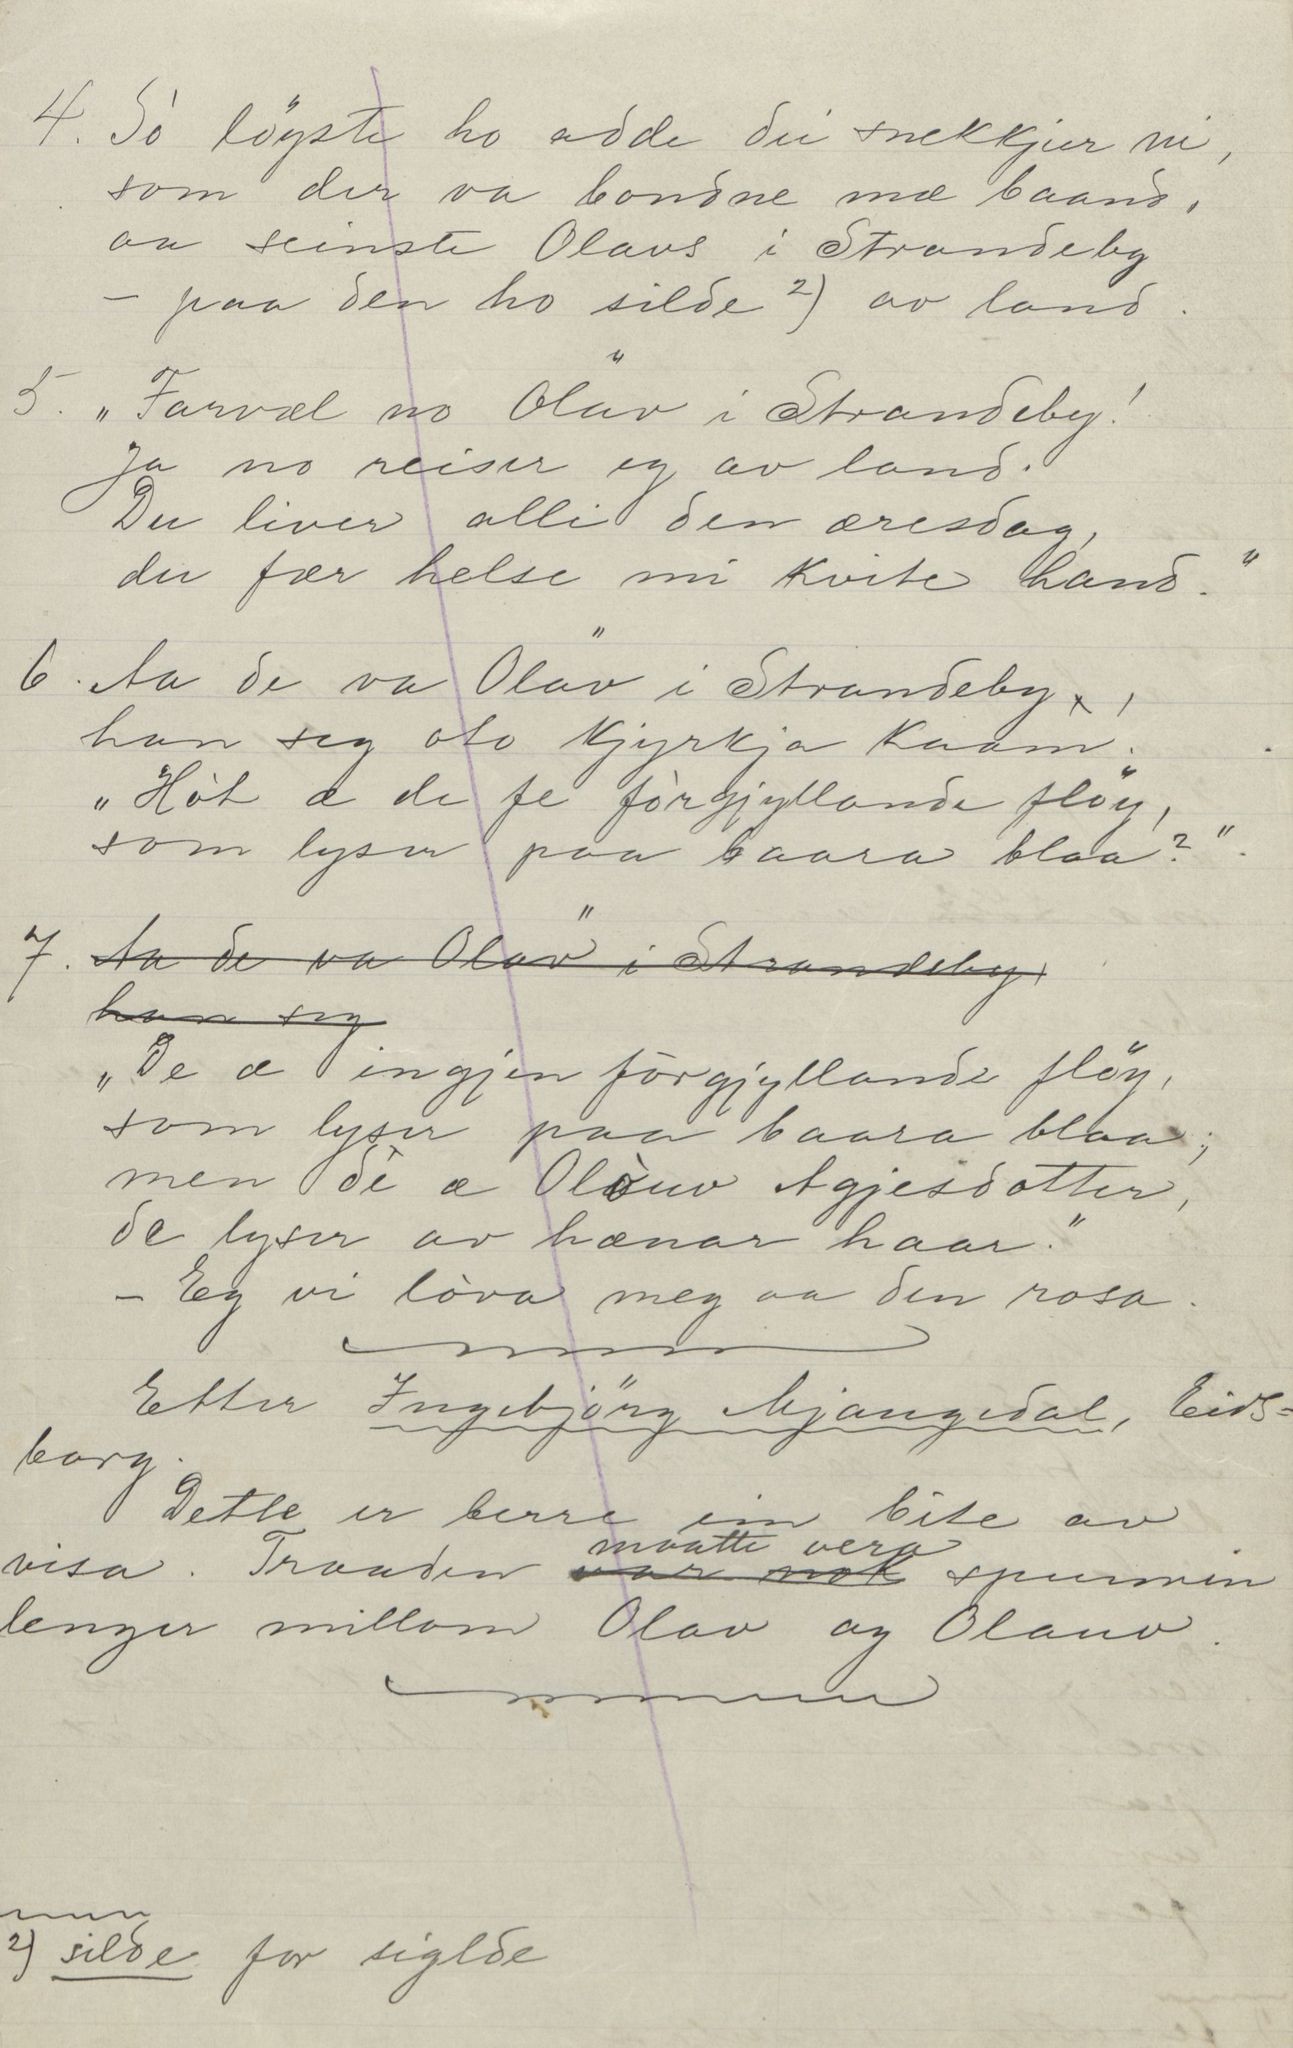 4. Só löyste ho adde dei snekkjur ni,
som der va bondne mæ baand,
aa seinste Olavs i Strandeby
– paa den ho silde 2) av land.
5. „Farvæl no Oläv i Strandeby!
Ja no reiser eg av land.
Du liver alli den æresdag,
du fær helse mi kvite hand."
6. Aa de va Oläv i Strandeby,
han seg oto kjyrkja kaam.
„Hòt æ de fe fòrgjyllande flöy,
som lyser paa baara blaa?"
7. Aa de va Oläv i Strandeby,
han seg
„De æ ingjen fòrgjyllande flöy,
som lyser paa baara blaa;
men dè æ Olòuv Agjesdotter,
de lyser av hænar haar."
– Eg vi lòva meg aa den rosa.
Etter Ingebjörg Mjaugedal, Eids-
borg.
Dette er berre ein bite av
maatte vera
visa. Traaden var nok spunnin
lenger millom Olav og Olauv.
2) silde for siglde